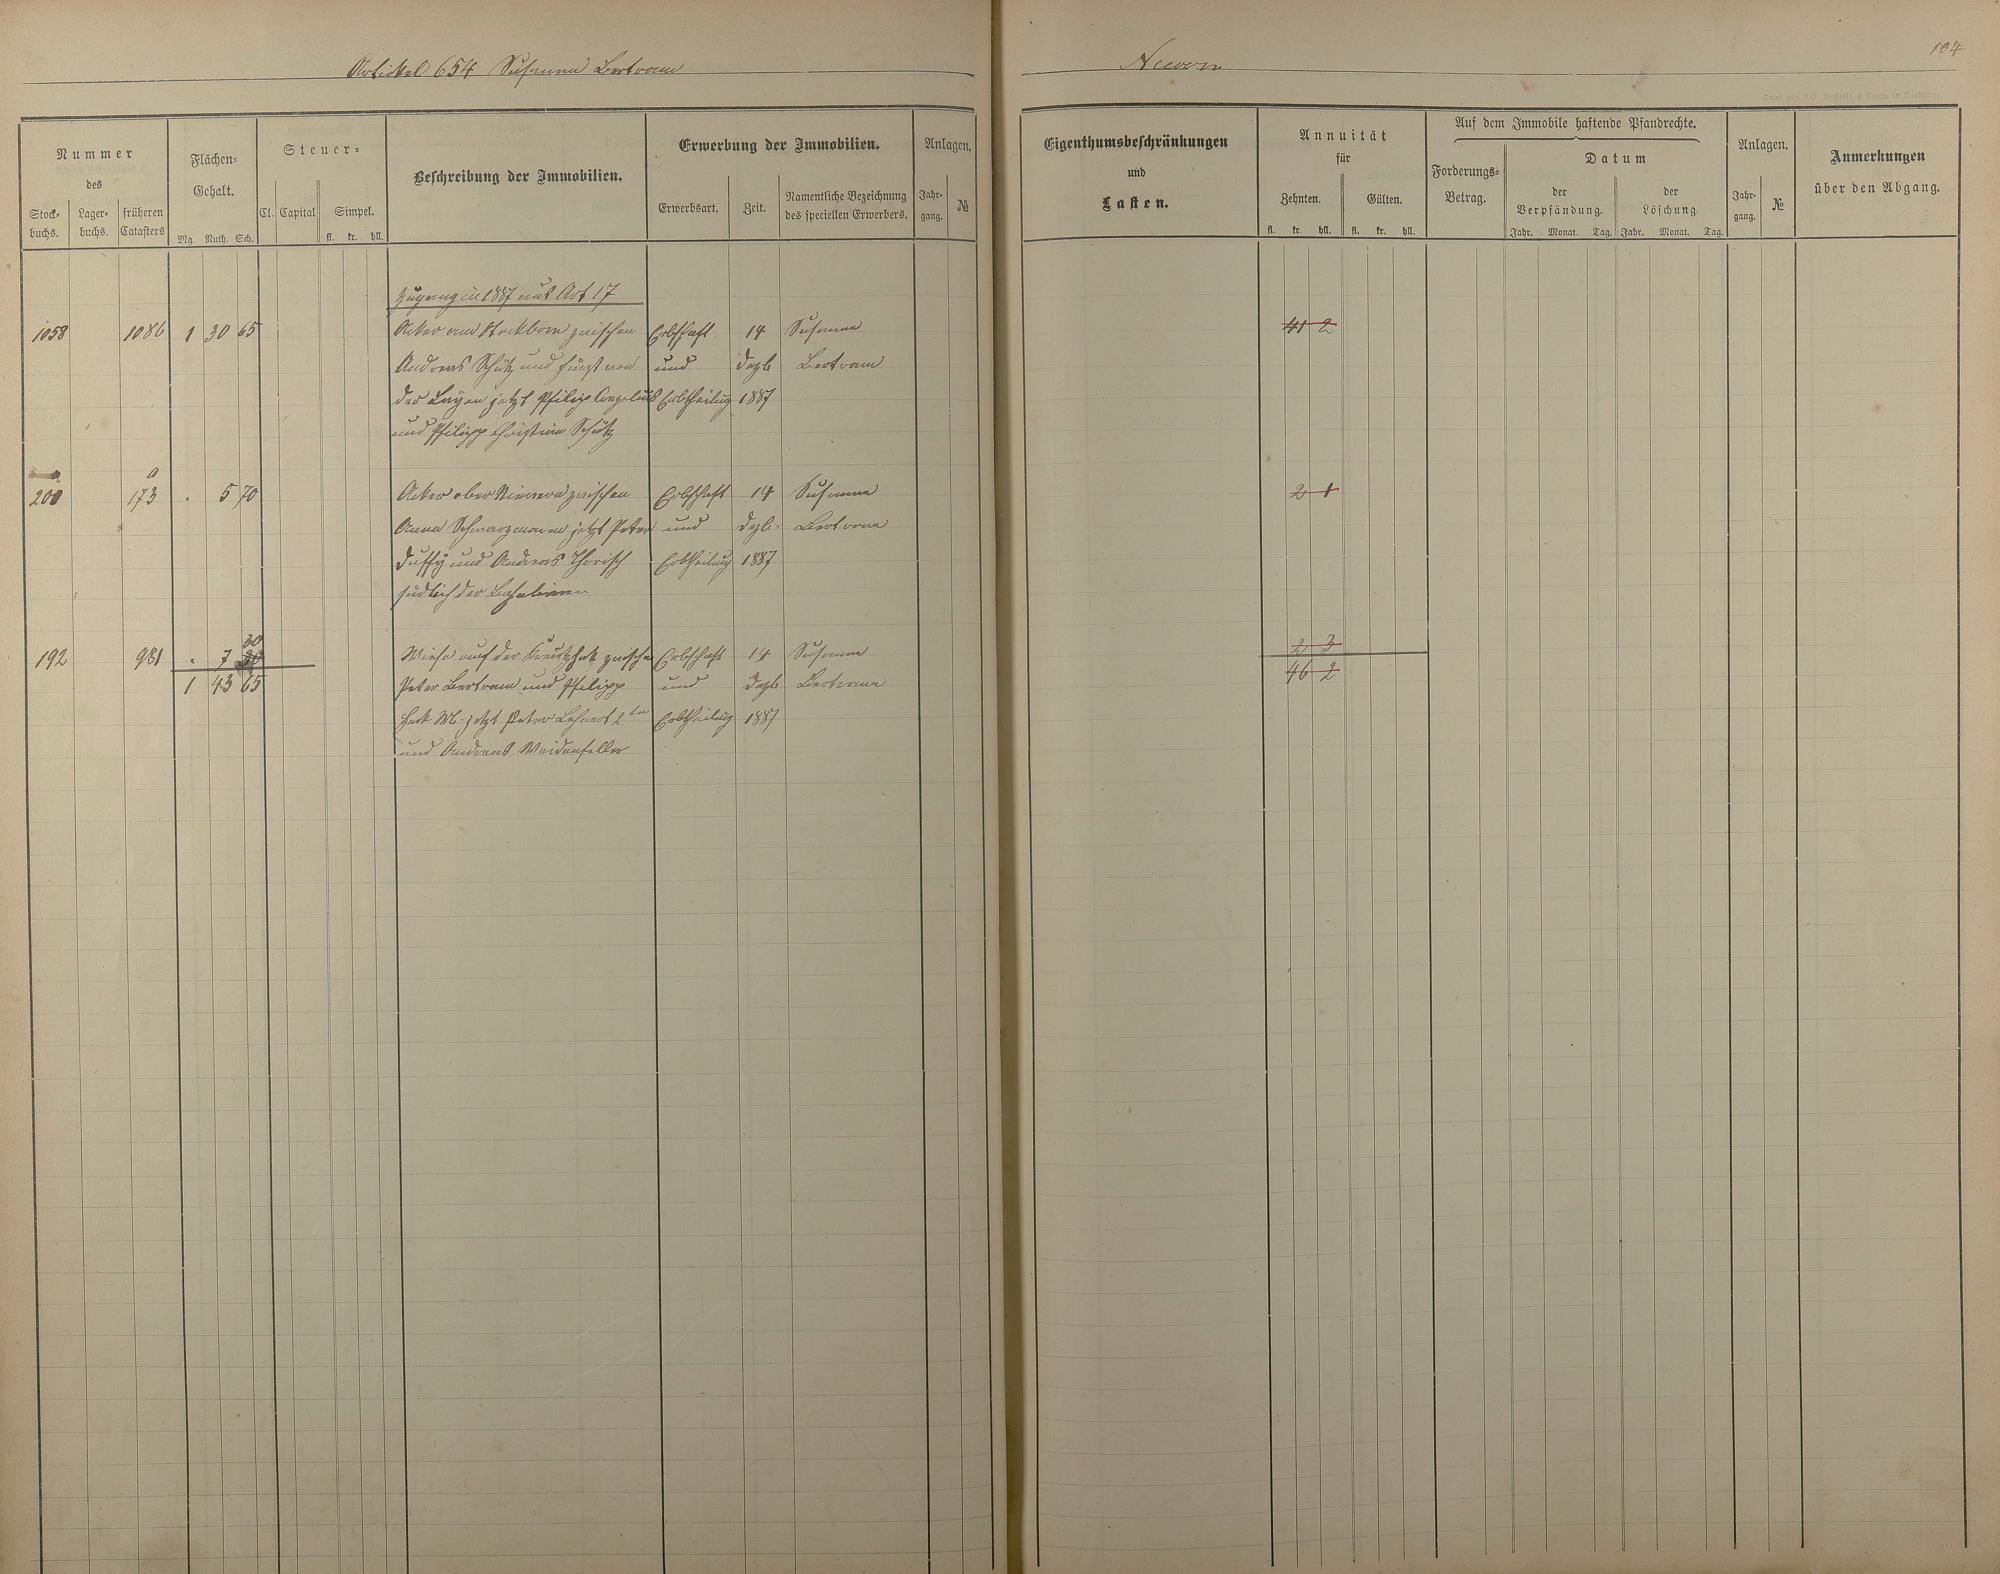 Artickel 654 Susanna Bertram
104
Nummer
des
Stock-
buchs.
Lager-
buchs.
früheren
Catasters
Flächen-
Gehalt.
Mg. Ruth. Sch.
Steuer-
Cl. Capital Simpel.
fl. kr. hll.
Beschreibung der Immobilien.
Erwerbung der Immobilien.
Erwerbsart. Zeit.
Namentliche Bezeichnung
des speciellen Erwerbers.
Anlagen.
Jahr-
gang.
№
Eigenthumsbeschränkungen
und
Lasten.
Annuität
für
Zehnten. Gülten.
fl. kr. hll. fl. kr. hll.
Auf dem Immobile haftende Pfandrechte.
Forderungs-
Betrag.
Datum
der
Verpfändung.
der
Löschung.
Jahr. Monat. Tag. Jahr. Monat. Tag.
Anlagen.
Jahr-
gang.
№
Anmerkungen
über den Abgang.
Zugang in 1887 aus Art 17
1058 1086 1 30 65 Acker am Stockborn zwischen Erbschaft 14 Susanna 41 2
Andreas Schütz und Fürst von und Dezb Bertram
der Leyen jetzt Philipp Erbtheilug 1887
und Philipp Christian Schütz
a
200 173 . 5 70 Acker ober zwischen Erbschaft 14 Susanna 2 1
Anna Schwarzmann jetzt Peter und Dezb. Bertram
Duffy und Andreas Erbtheilung 1887
südlich der
30
192 981 . 7 Wiese auf der zwischen Erbschaft 14 Susanna 2 3
1 43 65 Peter Bertram und Philipp und Dezb Bertram 46 2
jetzt Peter Lehnert 2ter Erbtheilug 1887
und Andreas Weidenfeller